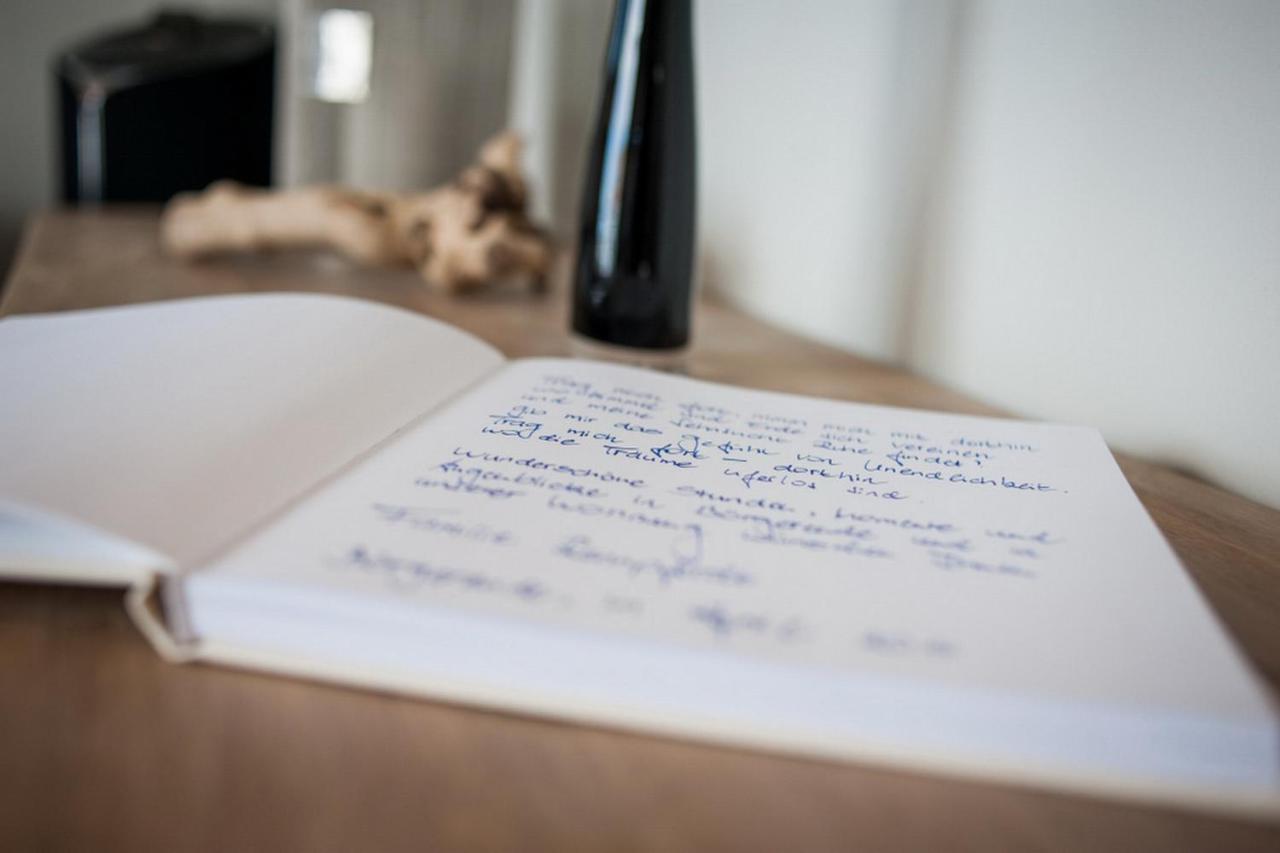 Trag mich fort, nimm mich mit dorthin
wo Himmel und Erde sich vereinen
und meine Sehnsucht Ruhe findet!
gib mir das Gefühl von Unendlichkeit.
Trag mich fort – dorthin
wo die Träume uferlos sind.
Wunderschöne Stunden, Momente und
Augenblicke in Börgerende und in
unserer Wohnung wünschen Ihnen
Familie
Börgerende, im April